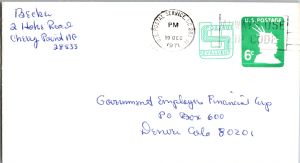 2 Hoke Road
Cherry Point NC
28533
U.S. POSTAL SERVICE
PM
19 DEC
1971
U.S. POSTAGE
6¢
Government Employees Financial Corp
PO Box 600
Denver Colo 80201